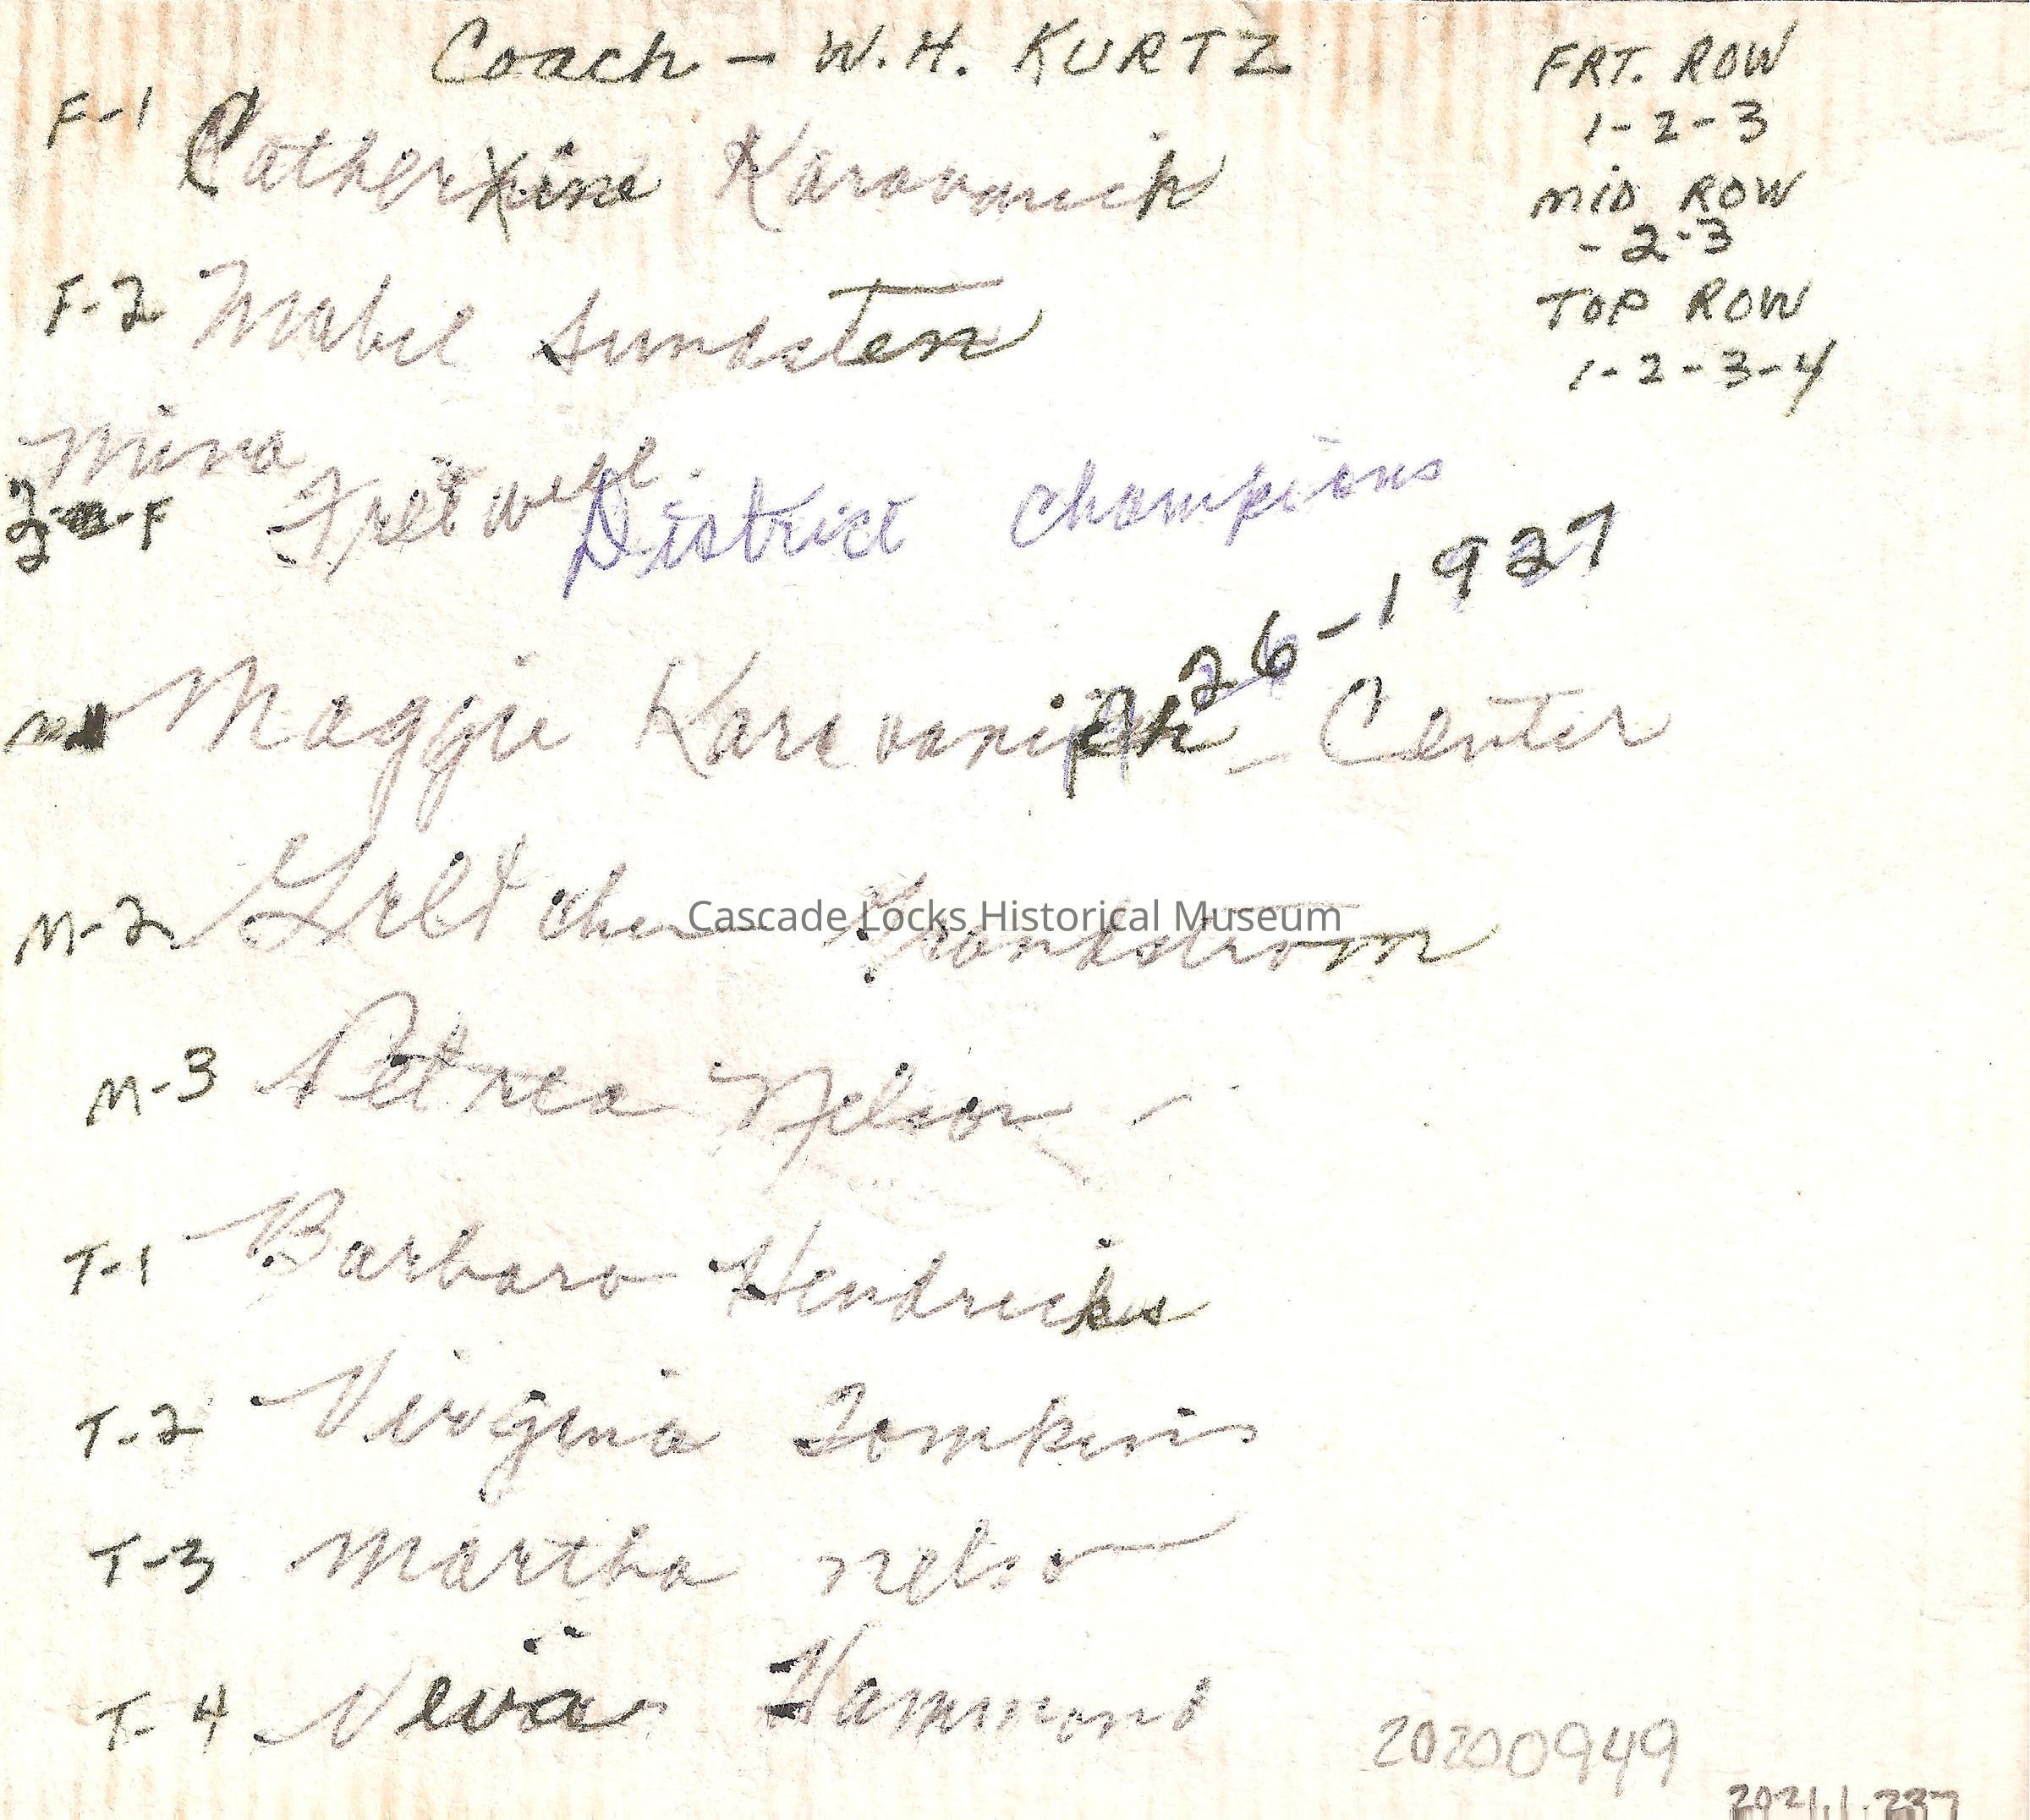 Coach - W.H. KURTZ
FRT. ROW
1-2-3
MID ROW
- 2-3
TOP ROW
1-2-3-4
F-1 Catherine Karavanich
F-2 Mabel Sundsten
Mina
3-F Fretwell
District Champions
26-1927
Maggie Karavanich - Center
M-2 Gretchen Grandstrom
Cascade Locks Historical Museum
M-3 Petrea Nelson -
T-1 Barbara Hendricks
T-2 Virginia Tompkins
T-3 Martha Nelson
T-4 Neva Hammond
20200949
2021.1.237